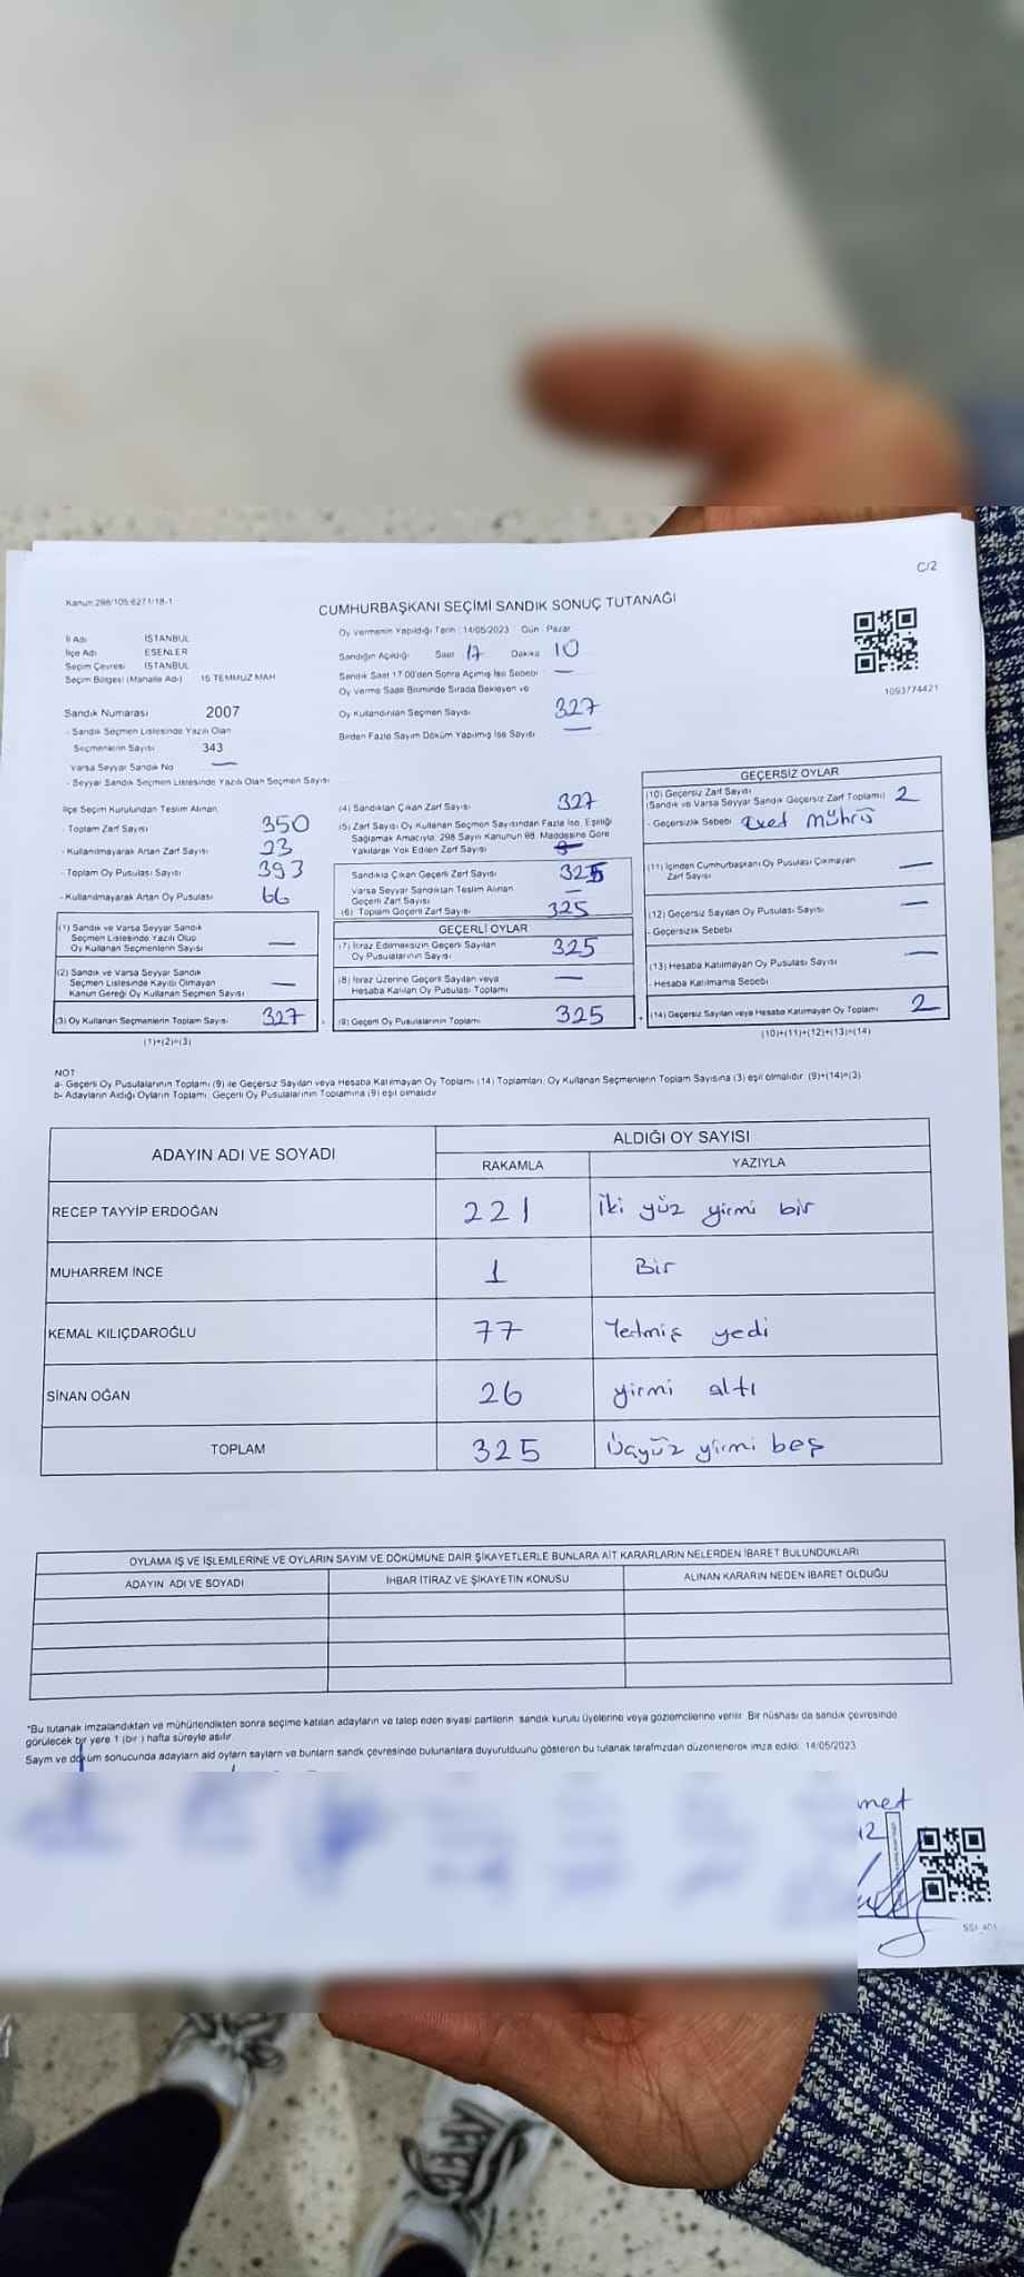 C/2
Kanun 298/105 6271/18-1
CUMHURBAŞKANI SEÇİMİ SANDIK SONUÇ TUTANAĞI
İl Adı İSTANBUL
İlçe Adı ESENLER
Seçim Çevresi İSTANBUL
Seçim Bölgesi (Mahalle Adı) 15 TEMMUZ MAH
Sandık Numarası 2007
- Sandık Seçmen Listesinde Yazılı Olan
Seçmenlerin Sayısı 343
Varsa Seyyar Sandık No —
- Seyyar Sandık Seçmen Listesinde Yazılı Olan Seçmen Sayısı
Oy Vermenin Yapıldığı Tarih : 14/05/2023 Gün : Pazar
Sandığın Açıldığı Saat 17 Dakika 10
Sandık Saat 17:00'den Sonra Açılmış İse Sebebi —
Oy Verme Saati Bitiminde Sırada Bekleyen ve
Oy Kullandırılan Seçmen Sayısı 327
Birden Fazla Sayım Döküm Yapılmış İse Sayısı —
1093774421
İlçe Seçim Kurulundan Teslim Alınan
- Toplam Zarf Sayısı 350
- Kullanılmayarak Artan Zarf Sayısı 23
- Toplam Oy Pusulası Sayısı 393
- Kullanılmayarak Artan Oy Pusulası 66
(1) Sandık ve Varsa Seyyar Sandık
Seçmen Listesinde Yazılı Olup
Oy Kullanan Seçmenlerin Sayısı —
(2) Sandık ve Varsa Seyyar Sandık
Seçmen Listesinde Kayıtlı Olmayan
Kanun Gereği Oy Kullanan Seçmen Sayısı —
(3) Oy Kullanan Seçmenlerin Toplam Sayısı 327
(1)+(2)=(3)
(4) Sandıktan Çıkan Zarf Sayısı 327
(5) Zarf Sayısı Oy Kullanan Seçmen Sayısından Fazla İse, Eşitliği
Sağlamak Amacıyla, 298 Sayılı Kanunun 98. Maddesine Göre
Yakılarak Yok Edilen Zarf Sayısı
Sandıkta Çıkan Geçerli Zarf Sayısı 325
Varsa Seyyar Sandıktan Teslim Alınan
Geçerli Zarf Sayısı —
(6) Toplam Geçerli Zarf Sayısı 325
GEÇERLİ OYLAR
(7) İtiraz Edilmeksizin Geçerli Sayılan
Oy Pusulalarının Sayısı 325
(8) İtiraz Üzerine Geçerli Sayılan veya
Hesaba Katılan Oy Pusulası Toplamı —
(9) Geçerli Oy Pusulalarının Toplamı 325
GEÇERSİZ OYLAR
(10) Geçersiz Zarf Sayısı
(Sandık ve Varsa Seyyar Sandık Geçersiz Zarf Toplamı) 2
- Geçersizlik Sebebi Evet mührü
(11) İçinden Cumhurbaşkanı Oy Pusulası Çıkmayan
Zarf Sayısı —
(12) Geçersiz Sayılan Oy Pusulası Sayısı —
- Geçersizlik Sebebi
(13) Hesaba Katılmayan Oy Pusulası Sayısı —
- Hesaba Katılmama Sebebi
(14) Geçersiz Sayılan veya Hesaba Katılmayan Oy Toplamı 2
(10)+(11)+(12)+(13)=(14)
NOT
a- Geçerli Oy Pusulalarının Toplamı (9) ile Geçersiz Sayılan veya Hesaba Katılmayan Oy Toplamı (14) Toplamları, Oy Kullanan Seçmenlerin Toplam Sayısına (3) eşit olmalıdır. (9)+(14)=(3)
b- Adayların Aldığı Oyların Toplamı, Geçerli Oy Pusulalarının Toplamına (9) eşit olmalıdır
ADAYIN ADI VE SOYADI
ALDIĞI OY SAYISI
RAKAMLA YAZIYLA
RECEP TAYYİP ERDOĞAN 221 İki yüz yirmi bir
MUHARREM İNCE 1 Bir
KEMAL KILIÇDAROĞLU 77 Yetmiş yedi
SİNAN OĞAN 26 yirmi altı
TOPLAM 325 Üçyüz yirmi beş
OYLAMA İŞ VE İŞLEMLERİNE VE OYLARIN SAYIM VE DÖKÜMÜNE DAİR ŞİKAYETLERLE BUNLARA AİT KARARLARIN NELERDEN İBARET BULUNDUKLARI
ADAYIN ADI VE SOYADI İHBAR İTİRAZ VE ŞİKAYETİN KONUSU ALINAN KARARIN NEDEN İBARET OLDUĞU
*Bu tutanak imzalandıktan ve mühürlendikten sonra seçime katılan adayların ve talep eden siyasi partilerin sandık kurulu üyelerine veya gözlemcilerine verilir. Bir nüshası da sandık çevresinde
görülecek bir yere 1 (bir) hafta süreyle asılır
Sayım ve döküm sonucunda adayların aldığı oyların sayıları ve bunların sandık çevresinde bulunanlara duyurulduğunu gösteren bu tutanak tarafımızdan düzenlenerek imza edildi. 14/05/2023
met
12